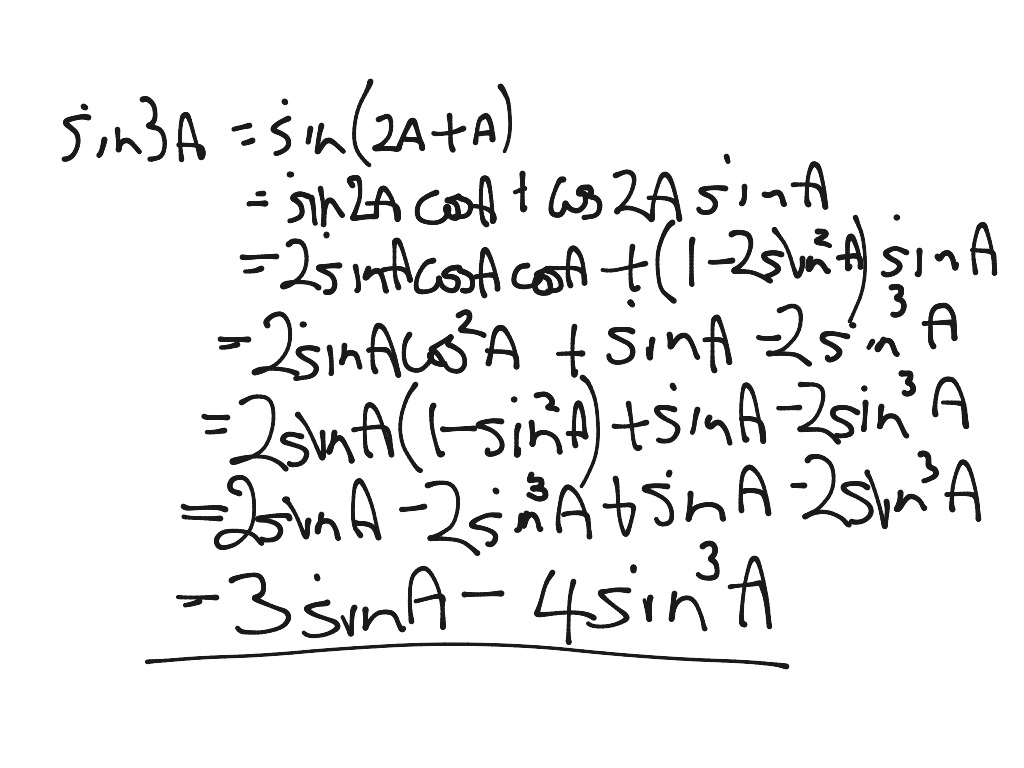 sin3A = sin(2A+A)
= sin2A cosA + cos2A sinA
= 2sinA cosA cosA + (1-2sin²A) sinA
= 2sinAcos²A + sinA - 2sin³A
= 2sinA(1-sin²A) + sinA - 2sin³A
= 2sinA - 2sin³A + sinA - 2sin³A
= 3sinA - 4sin³A